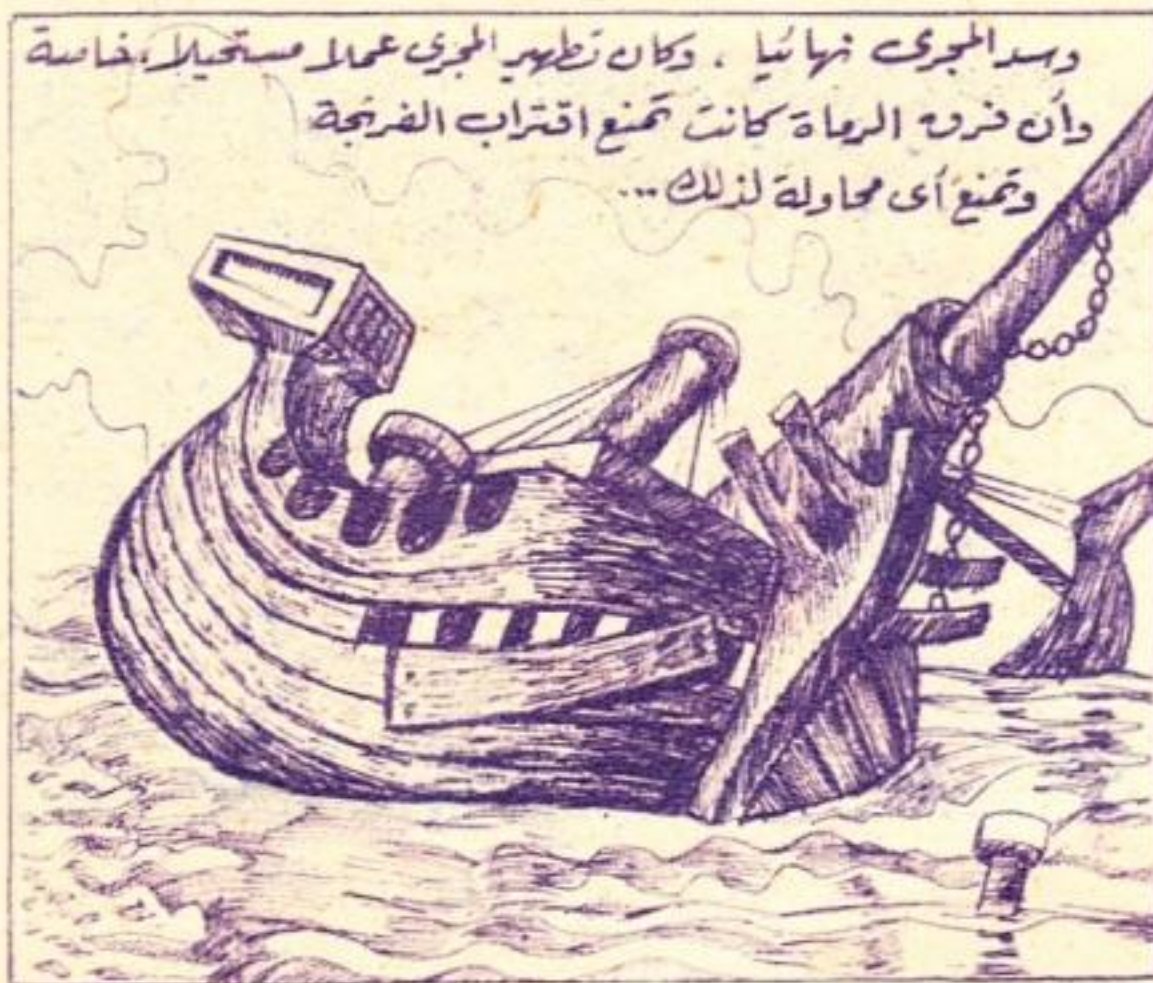 وسد المجرى نهائيا . وكان تطهير المجرى عملا مستحيلا، خاصة
وأن فرق الرماة كانت تمنع اقتراب الفرنجة
وتمنع أى محاولة لذلك...